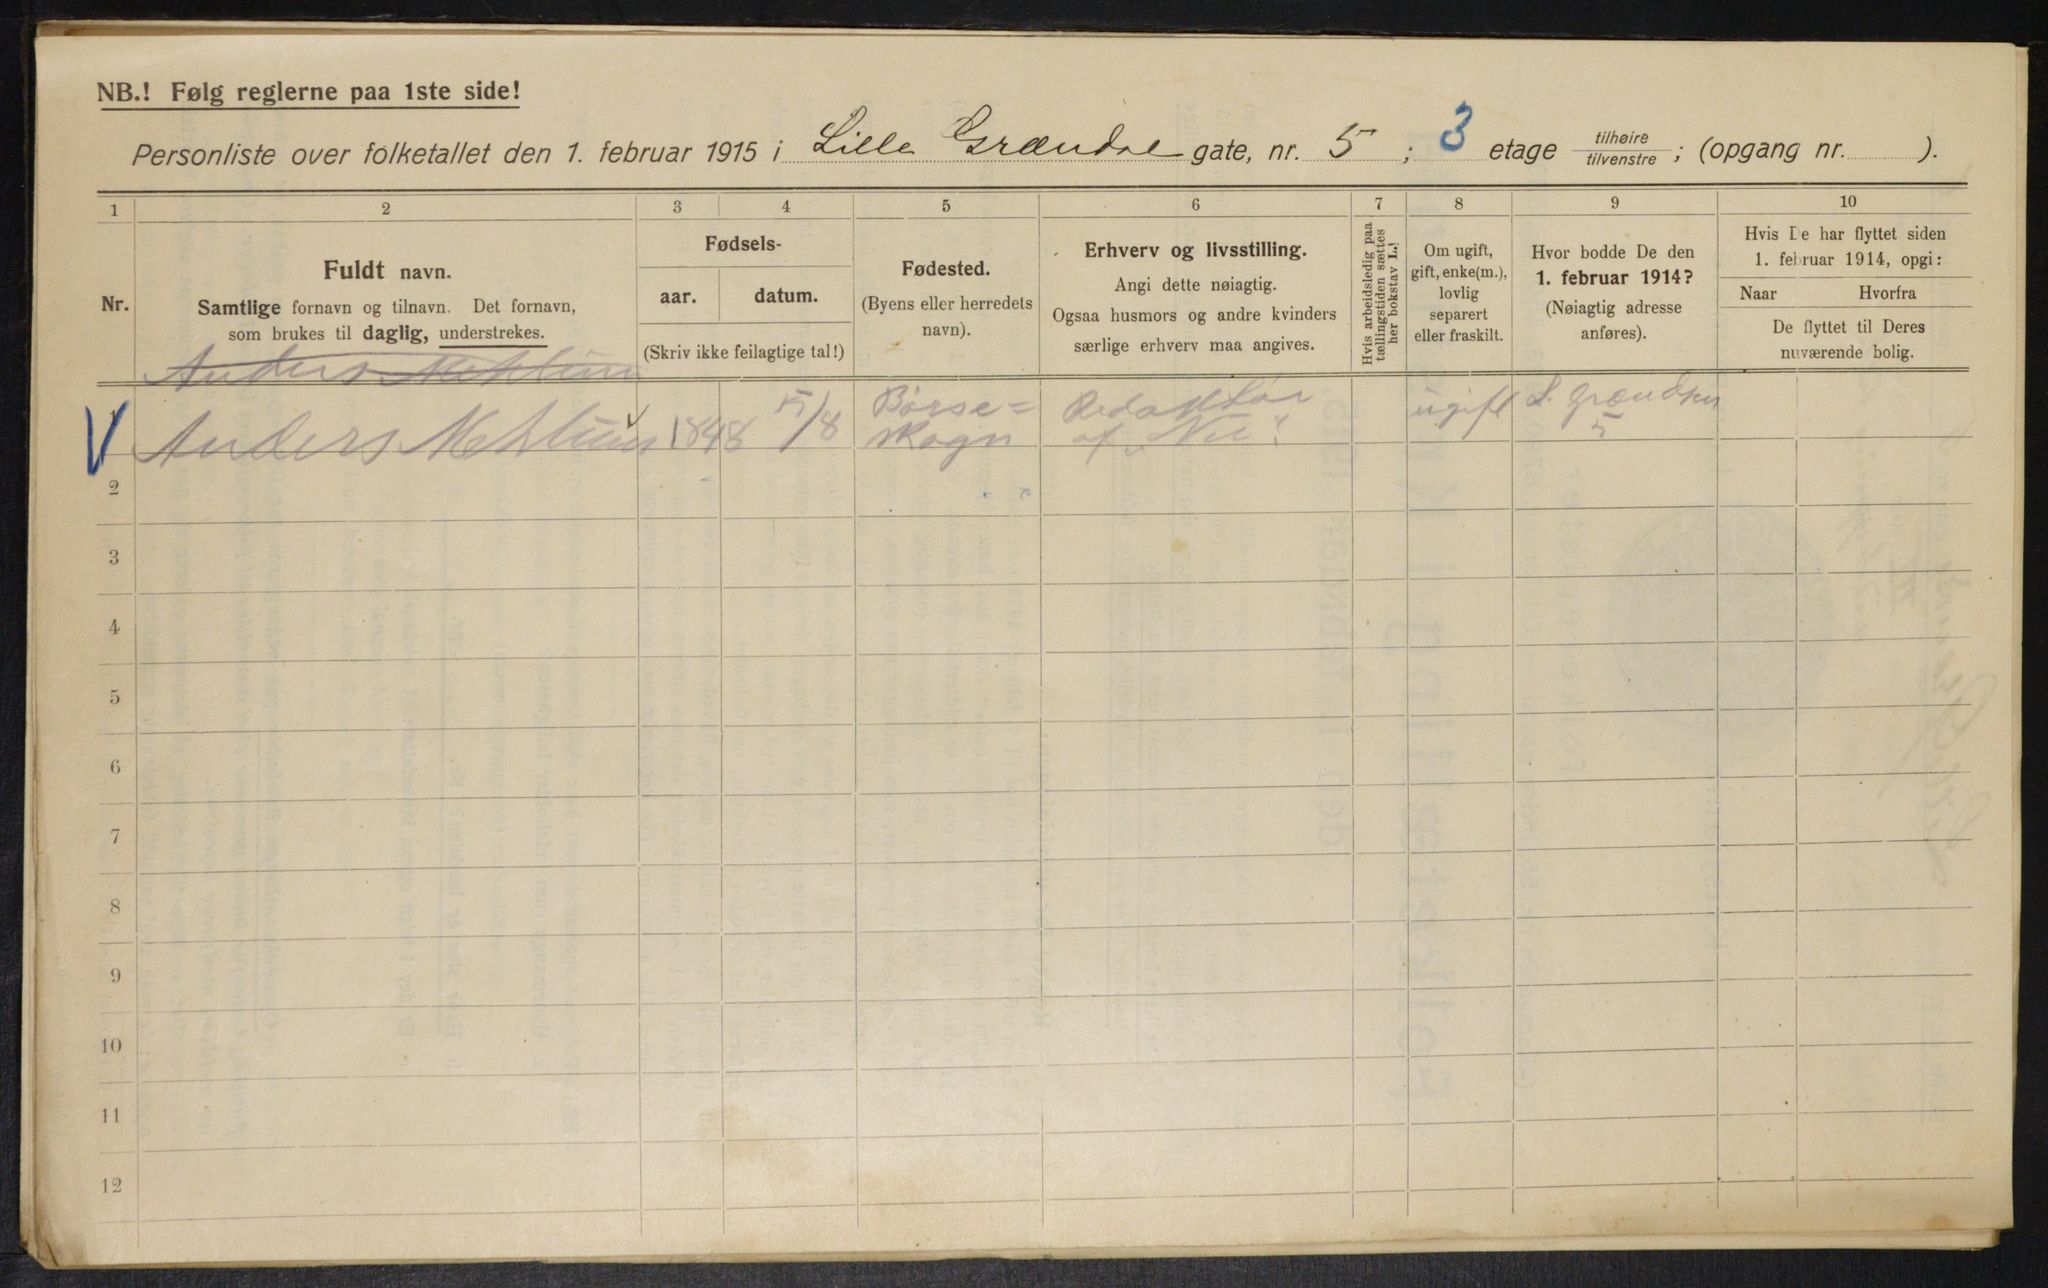 NB.! Følg reglerne paa 1ste side!
Personliste over folketallet den 1. februar 1915 i Lille Grændse gate, nr. 5 ; 3 etage tilhøire/tilvenstre ; (opgang nr. ).
1 2 3 4 5 6 7 8 9 10
Nr.
Fuldt navn.
Samtlige fornavn og tilnavn. Det fornavn,
som brukes til daglig, understrekes.
Fødsels-
aar. datum.
(Skriv ikke feilagtige tal!)
Fødested.
(Byens eller herredets
navn).
Erhverv og livsstilling.
Angi dette nøiagtig.
Ogsaa husmors og andre kvinders
særlige erhverv maa angives.
Hvis arbeidsledig paa
tællingstiden sættes
her bokstav L.!
Om ugift,
gift, enke(m.),
lovlig
separert
eller fraskilt.
Hvor bodde De den
1. februar 1914?
(Nøiagtig adresse
anføres).
Hvis De har flyttet siden
1. februar 1914, opgi:
Naar Hvorfra
De flyttet til Deres
nuværende bolig.
Anders Mehlum
V Anders Mehlum 1848 5/8 Børse=
skogn
Redaktør
af "Nu"
ugift
L. Grændsen
5
2
3
4
5
6
7
8
9
10
11
12